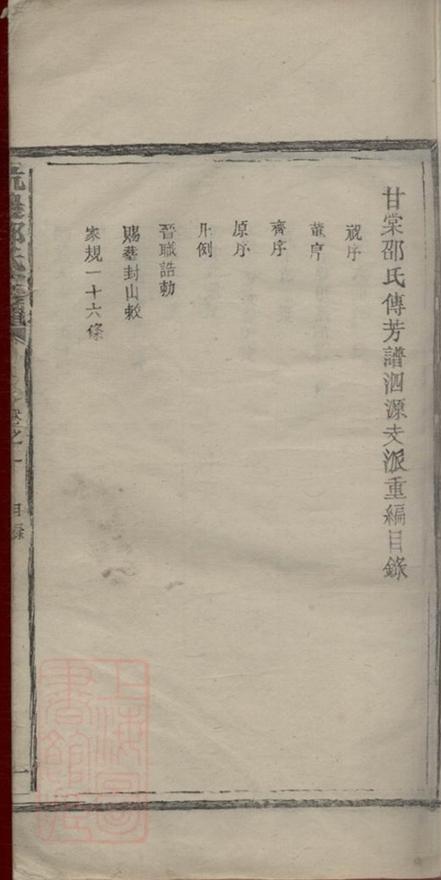 甘棠邵氏傳芳譜泗源支派重編目錄
祝序
董序
齊序
原序
凡例
晉職誥勅
賜塟封山敕
家規一十六條
卷之一 目錄
一
上海圖書館藏